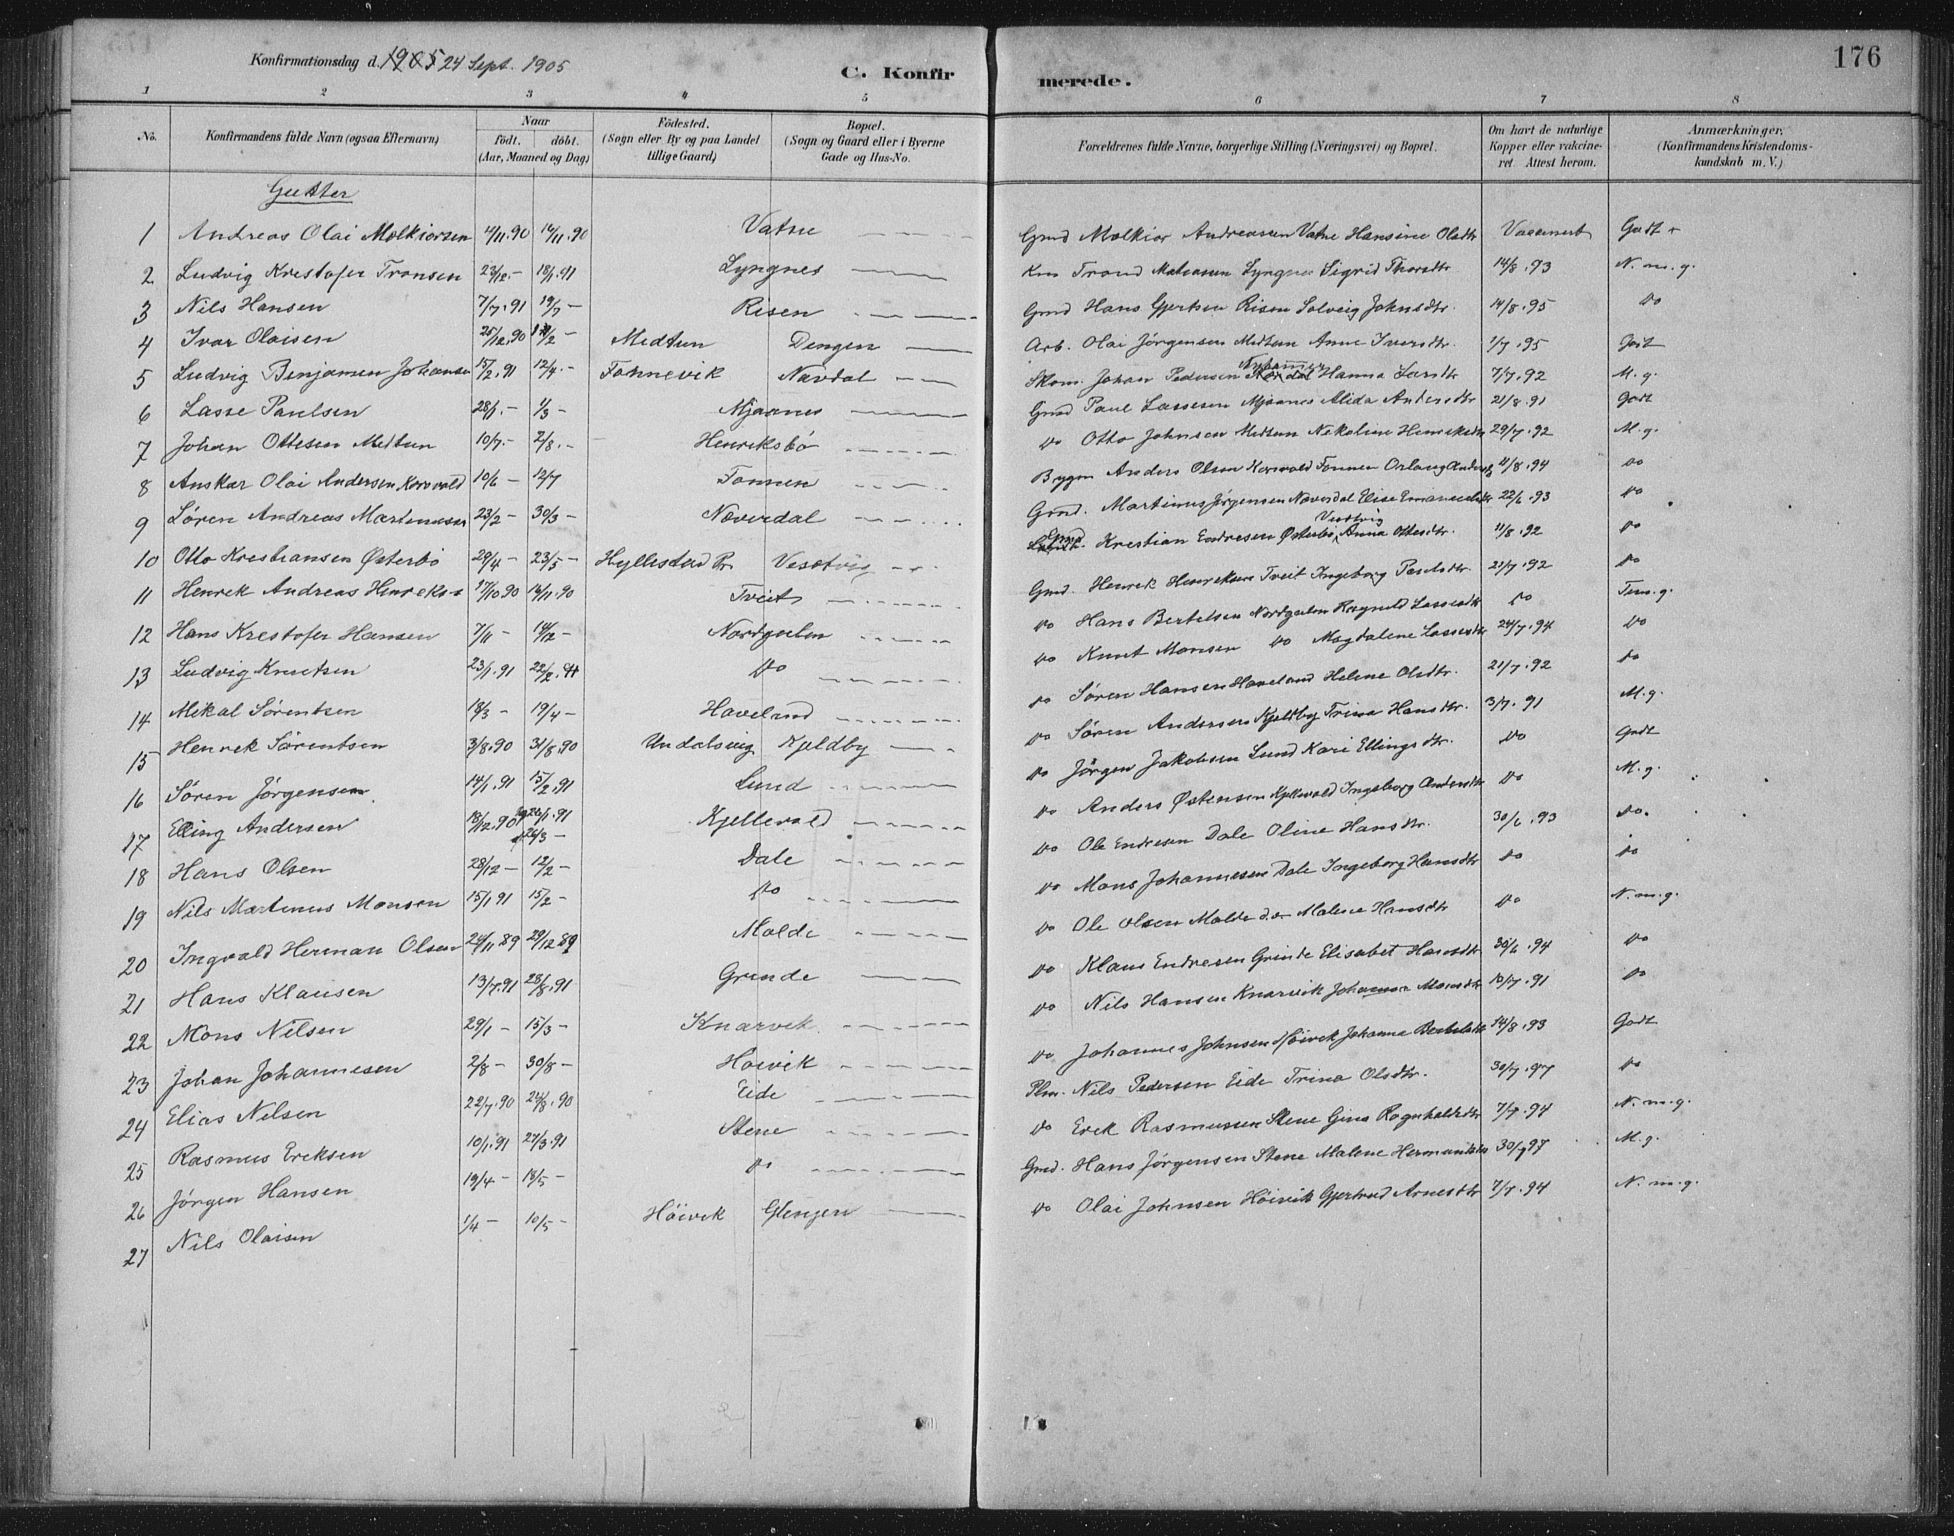 Konfirmationsdag d. 1905 24 Sept. 1905
C. Konfirmerede.
176
1 2 3 4 5 6 7 8
No. Konfirmandens fulde Navn (ogsaa Efternavn) Naar født. døbt. (Aar, Maaned og Dag) Fødested. (Sogn eller By og paa Landet tillige Gaard) Bopæl. (Sogn og Gaard eller i Byerne Gade og Hus-No. Forældrenes fulde Navne, borgerlige Stilling (Næringsvei) og Bopæl. Om havt de naturlige Kopper eller vakcineret Attest herom. Anmærkninger. (Konfirmandens Kristendomskundskab m. V.)
Gutter
1 Andreas Olai Melkiorsen 4/11.90 16/11.90 Vatne Gmd Melkior Andreassen Vatne Hansine Olsdtr Godt
2 Ludvig Kristofer Tronsen 23/12 - 18/1.91 Lyngnes Trond Matiassen Lyngnes Sigrid Thorsdtr 14/8.93 N. m. g.
3 Nils Hansen 7/7.91 19/7 - Risen Gmd Hans Gjertsen Risen Solveig Johnsdtr. 14/8.95 do
4 Ivar Olaisen 25/12.90 Medtun Dengen Arb. Olai Jørgensen Medtun Anne Iversdtr. 1/7.95 Godt
5 Ludvig Benjamin Johansen 15/2.91 12/4 - Fonnevik Navdal Skom. Johan Pedersen Nyhammer Hanna Larsdtr 7/7.92 M. g.
6 Lasse Paulsen 28/1 - 1/3 - Mjaanes Gmd Paul Lassesen Mjaanes Alida Andersdtr 21/8.91 Godt
7 Johan Ottesen Medtun 10/7 - 2/8 - Henriksbø do Otto Johnsen Medtun Nekoline Henriksdtr 29/7.92 M. g.
8 Anskar Olai Andersen Korsvold 10/6 - 12/7 Fonnen Bygm Anders Olsen Korsvold Fonnen 11/8.94 do
9 Søren Andreas Martinussen 23/2 - 30/3 - Næverdal Gmd. Martinus Jørgensen Næverdal Elise Emanuelsdtr 22/6.93 do
10 Otto Kristiansen Østerbø 29/4 - 23/5 - Hyllestad Pr. Vestvig Gmd Kristian Endresen Østerbø, Vestvig Anna Ottesdtr. 11/8.92 do
11 Henrik Andreas Henriksen 17/10 90 16/11.90 Tveit Gmd. Henrik Henriksen Tveit Ingeborg 21/7.92 do
12 Hans Kristofer Hansen 7/11 - 14/12 - Nordgulen do Hans Bertelsen Nordgulen Ragnild Lassesdtr do Tem. g.
13 Ludvig Knutsen 23/1.91 22/2.91 do do Knut Monsen do Magdalene Lassesdtr 24/7.94 do
14 Mikal Sørensen 18/3 - 19/4 - Haveland do Søren Hansen Haveland Helene Olsdtr. 21/7.92 do
15 Henrik Sørensen 3/8.90 31/8.90 Undalsvig Kjeldby do Søren Andersen Kjeldby Trina Hansdtr. 3/7.91 M. g.
16 Søren Jørgensen 14/1.91 15/2.91 Lund do Jørgen Jakobsen Lund Kari Ellingsdtr. do Godt
17 Elling Andersen 18/12.90 26/1.91 26/3 - Kjellevold do Anders Østensen Kjellevold Ingeborg Andersdtr do M. g.
18 Hans Olsen 28/12 - 12/2 - Dale do Ole Endresen Dale Oline Hansdtr. 30/6.93 do.
19 Nils Martinus Monsen 15/1 91 15/2 - do do Mons Johannesen Dale Ingeborg Hansdtr do do
20 Ingvald Herman Olsen 24/11.89 29/12 89 Molde do Ole Olsen Molde Malene Hansdtr do N. m. g.
21 Hans Klausen 13/7.91 28/8.91 Grinde do Klaus Endresen Grinde Elisabet Hansdtr 30/6.94 do
22 Mons Nilsen 29/1 - 15/3 - Knarvik do Nils Hansen Knarvik Johanna Monsdtr 10/7.91 do
23 Johan Johannesen 2/8 - 30/8 - Høivik do Johannes Johnsen Høivik Johanna Bertelsdtr 14/8.93 Godt
24 Elias Nilsen 22/7.90 24/8.90 Eide Plm. Nils Pedersen Eide Trina Olsdtr. 30/7.97 do
25 Rasmus Eriksen 10/1.91 27/3.91 Stene do Erik Rasmussen Stene Gina Ragnhaldsdtr 7/7.94 N. m. g.
26 Jørgen Hansen 19/4 - 18/5 - do Gmd. Hans Jørgensen Stene Malene Hermundsdtr M. g.
27 Nils Olaisen 1/4 - 10/5 - Høivik Glenjen do Olai Johnsen Høivik Gjertrud Arnesdtr 7/7.94 N. m. g.